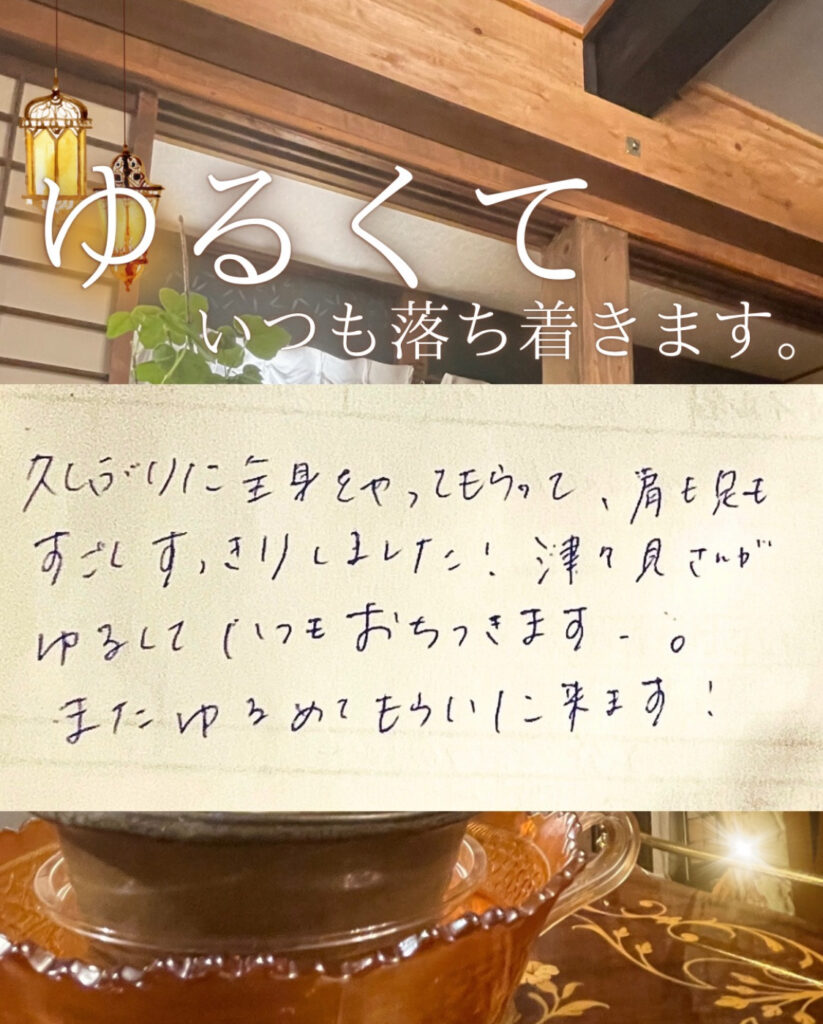 ゆるくて
いつも落ち着きます。
久しぶりに全身をやってもらって、肩も足も
すごくすっきりしました！津々見さんが
ゆるくていつもおちつきます－。
またゆるめてもらいに来ます！